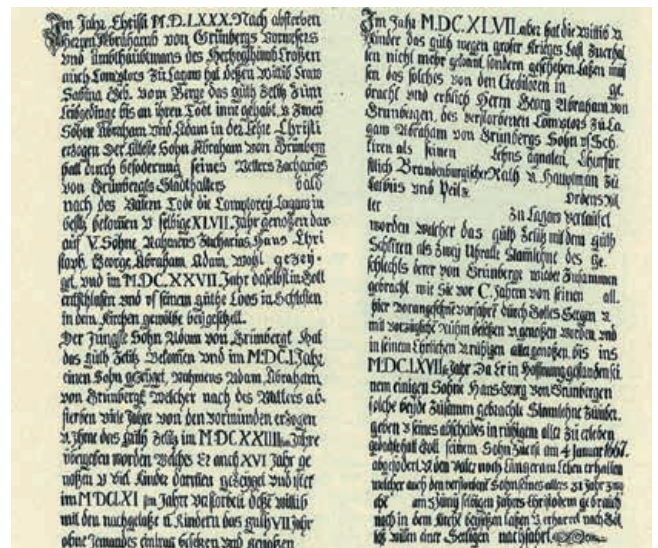 Im Jahr Christi M.D.LXXX. Nach absterben
Herren Abrahamb von Grünbergs Vorwesers
und ambthaubtmans des Hertzogthumb Croßen
auch Comptors Zu Lagaw hat deßen Wittib Fraw
Sabina Geb. vom Berge das guth Zeltz Zum
Leibgedinge bis an ihren Todt inne gehabt, u Zwey
Söhne Abraham und Adam in der Lehre Christi
erzogen Der Elteste Sohn Abraham von Grünberg
hatt durch befoderung seines Vetters Zacharias
von Grünbergks Stadthalters bald
nach des Vatern Tode die Comptorey Lagaw in
besitz bekomen u selbige XLVII. Jahr genoßen dar
auf V. Söhne Nahmens Zacharius Hans Chri
stoph, George, Abraham Adam, wohl gezey-
get, und im M.DC.XXVII. Jahr daselbst in Gott
entschlafen und uf seinem guthe Loos in Schlesien
in dem Kirchen gewölbe beygesetzt.
Der Jüngste Sohn Adam von Grünbergk hat
das guth Zeltz Bekomen und im M.DC.I Jahr
einen Sohn gezeüget, Nahmens Adam Abraham
von Grünbergk welcher nach des Vatters ab-
sterben viele Jahre von den vormünden erzogen
u. Ihme das guth Zeltz im M.DC.XXIII Jahre
übergeben worden Welches Er auch XVI Jahr ge
noßen u viel Kinder darinen gezeuget und ist er
im M.DC.XLI Jahre Verstorben deße wittib
mit den nachgelaße n. Kindern das guth VII Jahr
ohne Jemandes eintrag beseßen und genoßen
Im Jahr M.DC.XLVII. aber hat die Wittib u.
Kinder das guth wegen großer Krieges Last Zuerhal
len nicht mehr getraut, sondern geschehen Laßen müs
sen das solches von den Creditoren in ge.
bracht und erblich Herrn Georg Abraham von
Grunbergen, des verstorbenen Comptors Zu La
gam Abraham von Grünbergs Sohn
tiren als seinen Lehns agnaten, Churfür
stlich Brandenburgischer Rath u. Hauptman Zu
Kotbus und Peitz Ordens Rit
ter Zu Lagaw verkauft
worden welcher das guth Zeltz mit dem guth
Schlften als Zwey Uhralte Stamlehne des Ge.
schlechts derer von Grünberge wieder Zusammen
gebracht wie Sie vor C. Jahren von seinen all.
hier vorangesetzten vorfahrē durch Gottes Seegen u.
mit vorzüglichē Ruhm beseßen u. genoßen worden, und
in seinem Ehrlichen u ruhigen alter genoßen, bis ins
M.DC.LXVII. Jahr Da Er in Hoffnung gestanden sei.
nem einigen Sohne Hans Georg von Grünbergen
solche beyde Zusamm gebrachte Stamlehne Zuüber.
geben u seines abscheides in ruhigem alter Zu erleben
Gott seinem Sohn Zuerst am 4 Januar 1667.
abgefodert, u. den Vater noch Länger am Leben erhalten
welcher auch den verstorbenē Sohn seines alters 31 Jahr
am Juny selbigen Jahres Christ
noch in dem Kirche beysetzen laßen u. erharret nach Got
tes willen einer Seeligen nachfahrt.